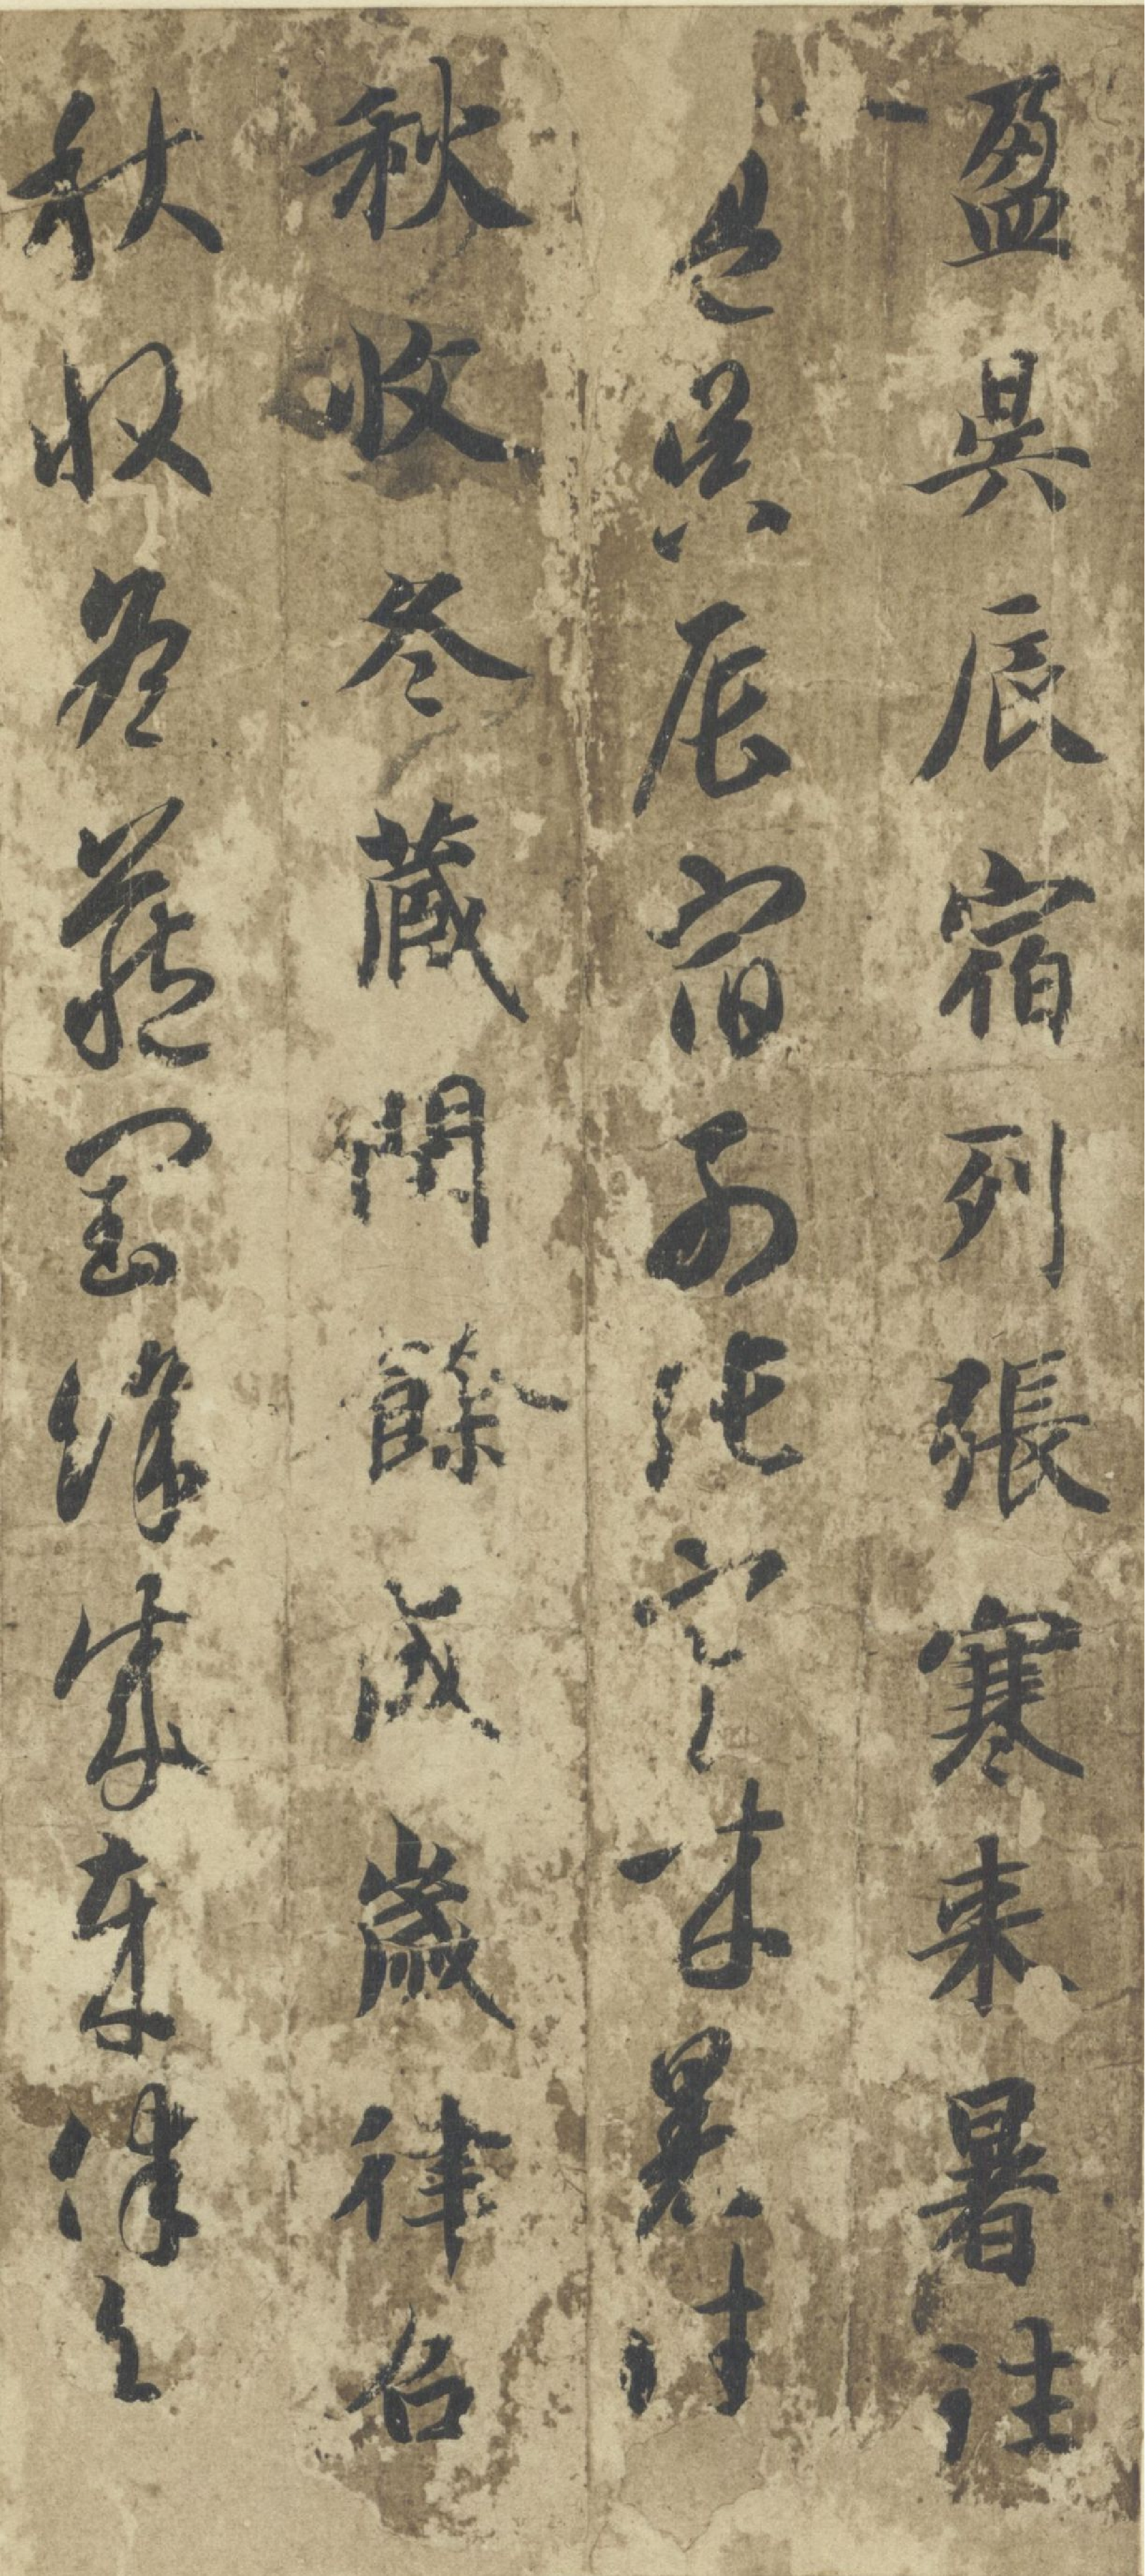 盈昃辰宿列張寒来暑往
盈昃辰宿列張寒来暑往
秋收冬蔵閏餘成歲律吕
秋收冬蔵閏餘成歲律吕